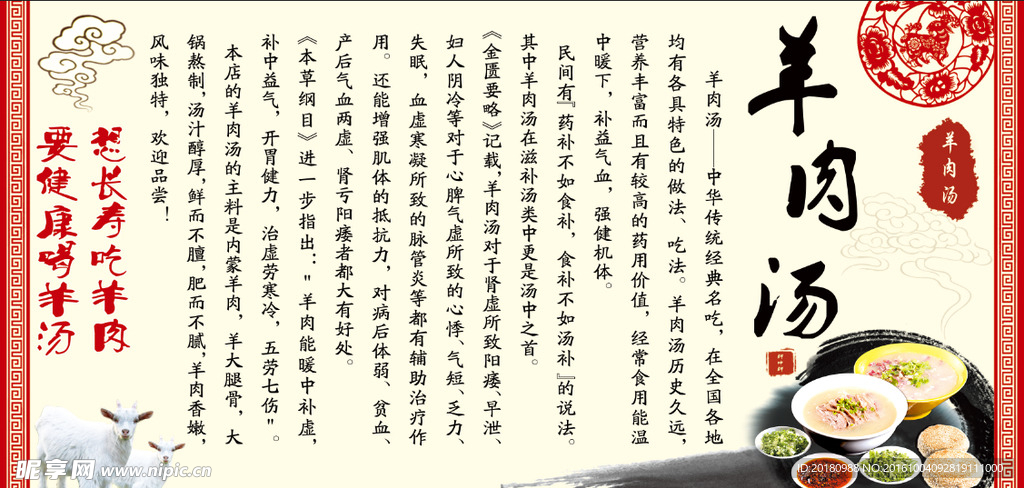 羊肉汤
羊肉汤
羊肉汤——中华传统经典名吃，在全国各地
均有各具特色的做法、吃法。羊肉汤历史久远，
营养丰富而且有较高的药用价值，经常食用能温
中暖下，补益气血，强健机体。
民间有『药补不如食补，食补不如汤补』的说法。
其中羊肉汤在滋补汤类中更是汤中之首。
《金匮要略》记载，羊肉汤对于肾虚所致阳痿、早泄、
妇人阴冷等对于心脾气虚所致的心悸、气短、乏力、
失眠，血虚寒凝所致的脉管炎等都有辅助治疗作
用。还能增强肌体的抵抗力，对病后体弱、贫血、
产后气血两虚、肾亏阳痿者都大有好处。
《本草纲目》进一步指出："羊肉能暖中补虚，
补中益气，开胃健力，治虚劳寒冷，五劳七伤"。
本店的羊肉汤的主料是内蒙羊肉，羊大腿骨，大
锅熬制，汤汁醇厚，鲜而不膻，肥而不腻，羊肉香嫩，
风味独特，欢迎品尝！
想长寿吃羊肉
要健康喝羊汤
昵享网 www.nipic.cn
ID:20180988 NO:20161004092819111000